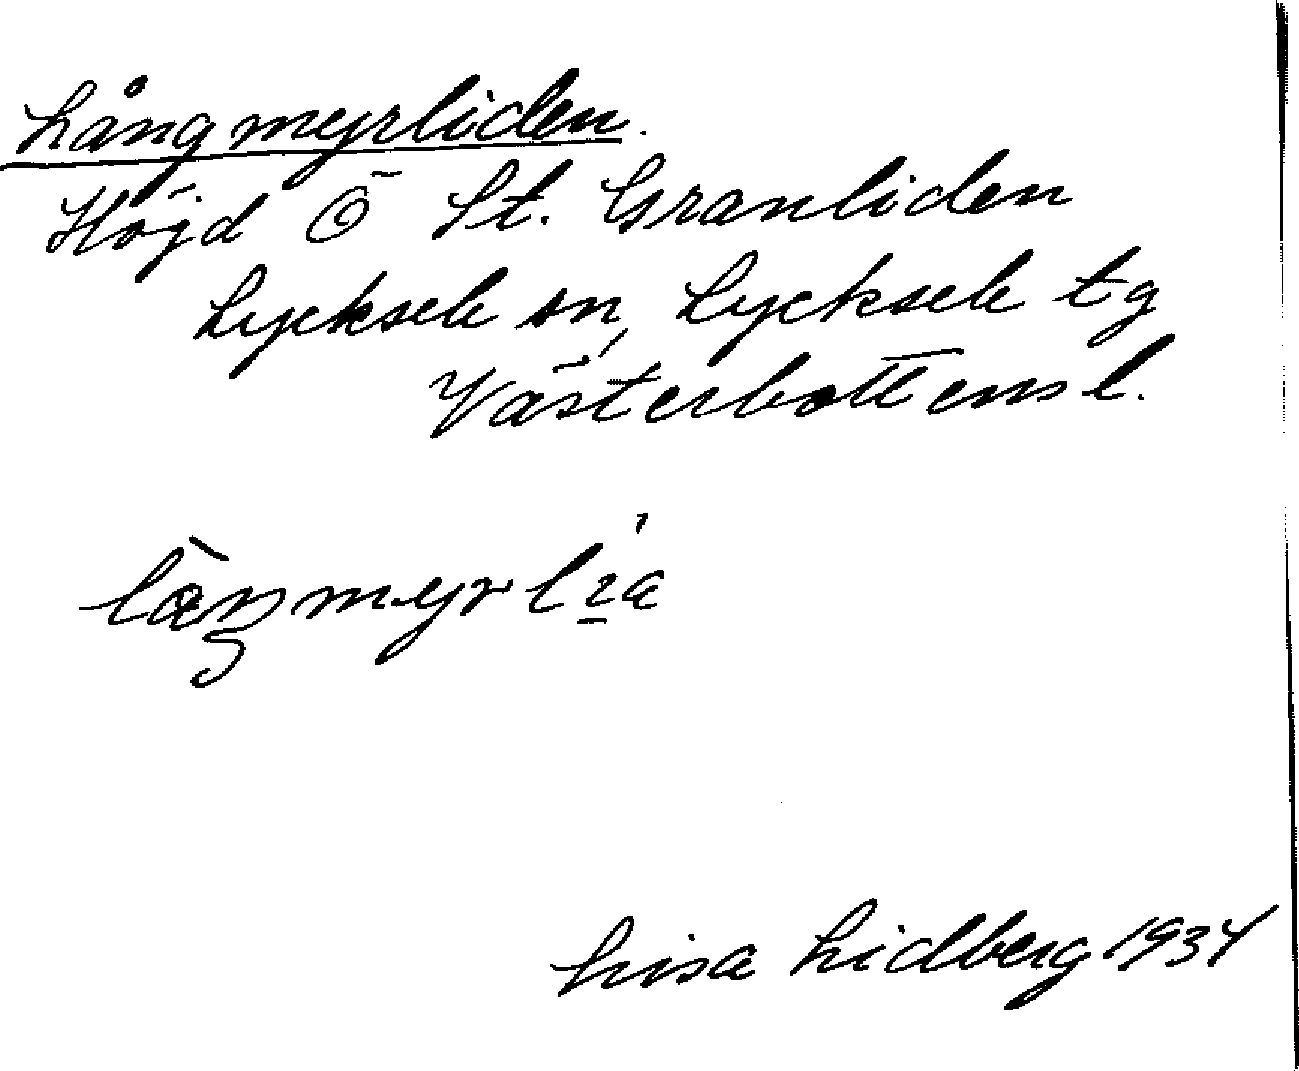 Långmyrliden.
Höjd Ö St. Granliden
Lycksele sn, Lycksele tg
Västerbottens l.
Lisa Lidberg 1934